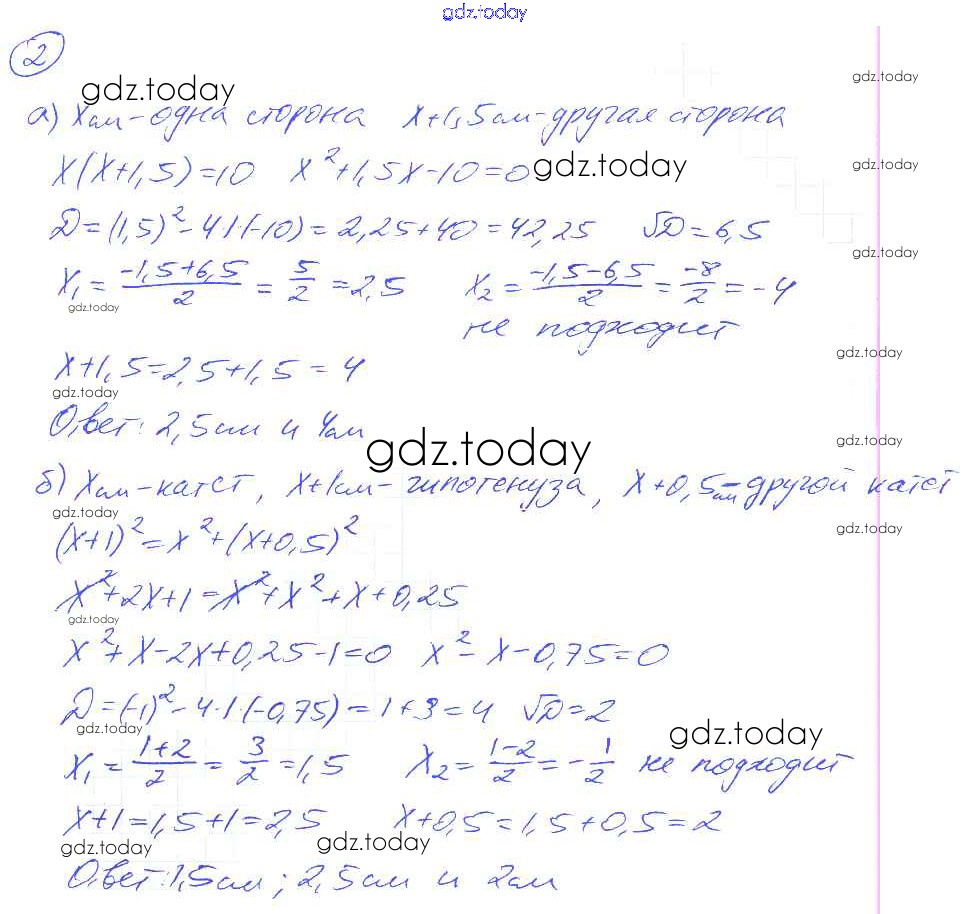 gdz.today
2
gdz.today
gdz.today
а) X см - одна сторона X+1,5 см - другая сторона
X(X+1,5)=10 X²+1,5X-10=0 gdz.today
gdz.today
D=(1,5)²-4·1·(-10)=2,25+40=42,25 √D=6,5
gdz.today
X₁=(-1,5+6,5)/2=5/2=2,5 X₂=(-1,5-6,5)/2=-8/2=-4
gdz.today
не подходит
gdz.today
X+1,5=2,5+1,5=4
gdz.today
Ответ: 2,5см и 4см
gdz.today
gdz.today
б) X см - катет, X+1см - гипотенуза, X+0,5см - другой катет
gdz.today
gdz.today
(X+1)²=X²+(X+0,5)²
X²+2X+1=X²+X²+X+0,25
gdz.today
X²+X-2X+0,25-1=0 X²-X-0,75=0
D=(-1)²-4·1·(-0,75)=1+3=4 √D=2
gdz.today
gdz.today
X₁=(1+2)/2=3/2=1,5 X₂=(1-2)/2=-1/2 не подходит
X+1=1,5+1=2,5 X+0,5=1,5+0,5=2
gdz.today
gdz.today
Ответ: 1,5см; 2,5см и 2см